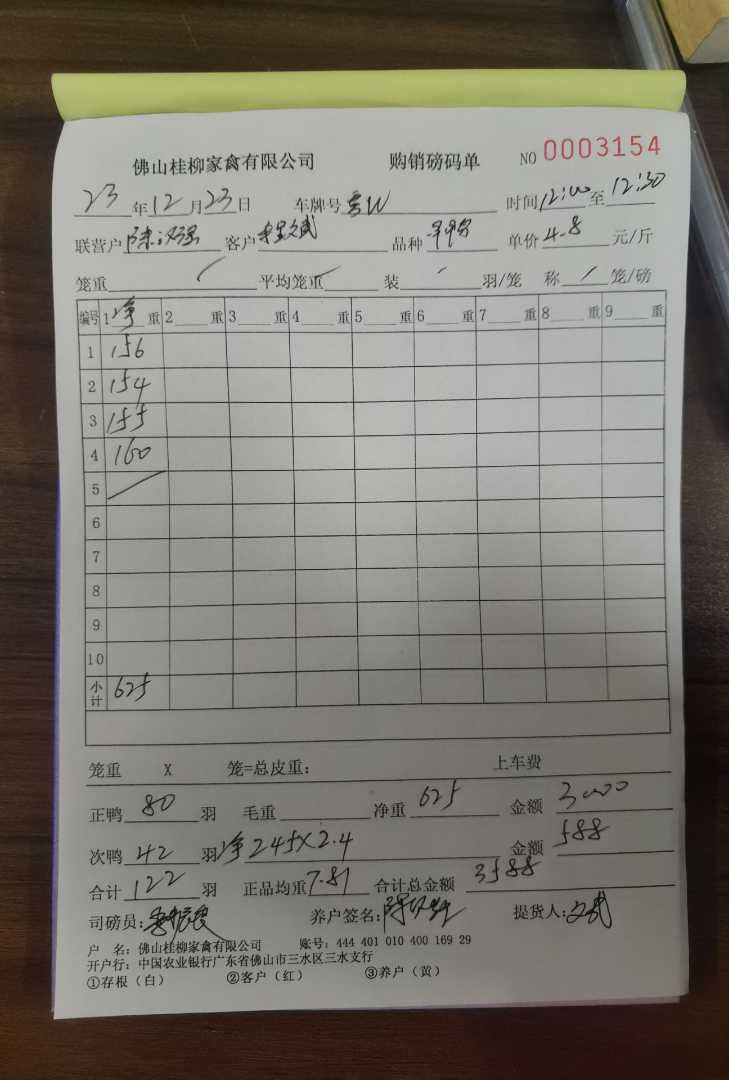 佛山桂柳家禽有限公司 购销磅码单 NO 0003154
23年12月23日 车牌号 时间12:00至12:30
联营户 陈汉强 客户 程文武 品种 单价 4.8 元/斤
笼重 平均笼重 装 羽/笼 称 笼/磅
编号 1 净 重 2 重 3 重 4 重 5 重 6 重 7 重 8 重 9 重
1 156
2 154
3 155
4 160
5
6
7
8
9
10
小计 625
笼重 X 笼=总皮重: 上车费
正鸭 80 羽 毛重 净重 625 金额 3000
次鸭 42 羽 净 245X2.4 金额 588
合计 122 羽 正品均重 7.81 合计总金额 3588
司磅员: 养户签名: 提货人: 文武
户 名: 佛山桂柳家禽有限公司 账号: 444 401 010 400 169 29
开户行: 中国农业银行广东省佛山市三水区三水支行
①存根(白) ②客户(红) ③养户(黄)